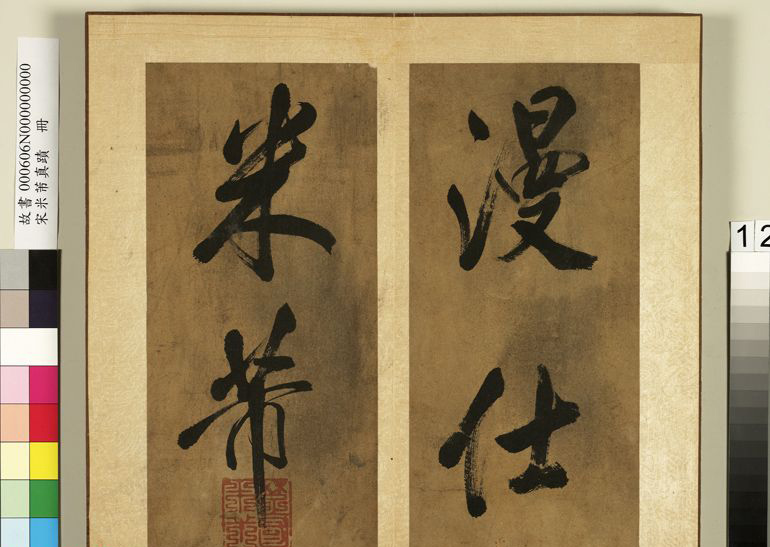 漫仕
米芾
故書 000606N000000000
宋米芾真蹟 冊
12